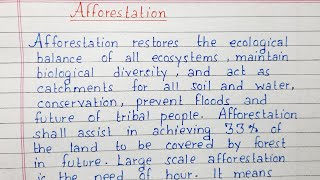 Afforestation
Afforestation restores the ecological
balance of all ecosystems, maintain
biological diversity, and act as
catchments for all soil and water,
conservation, prevent floods and
future of tribal people. Afforestation
shall assist in achieving 33% of
the land to be covered by forest
in future. Large scale afforestation
is the need of hour. It means